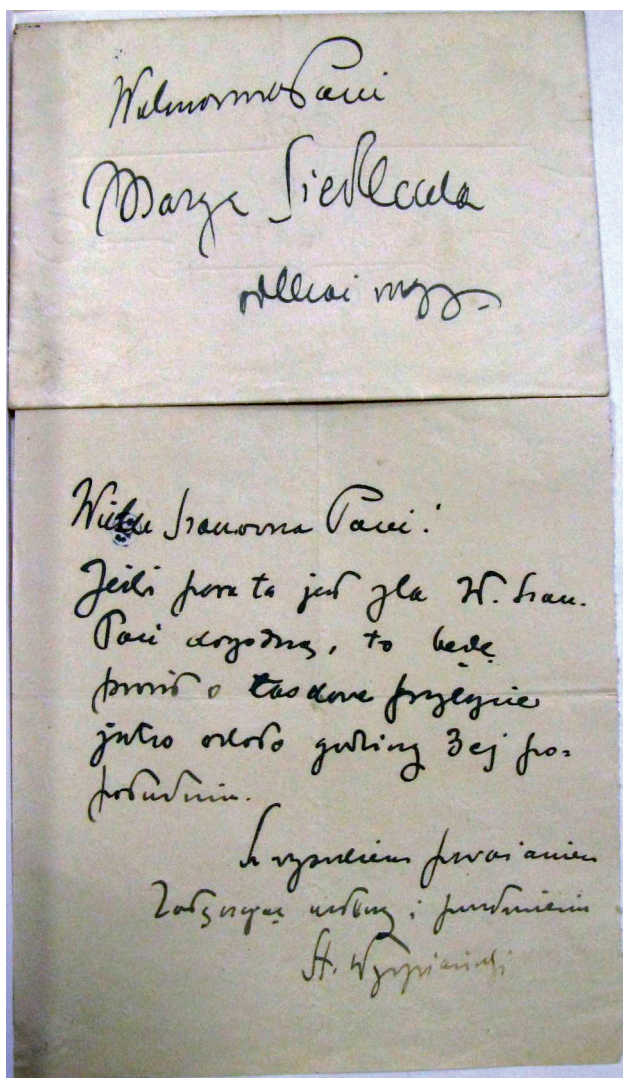 Wielmożna Pani
Marya Siedlecka
Wielce Szanowna Pani!
Jeśli pora ta jest dla W. Szan.
Pani dogodną, to będę
prosił o łaskawe przybycie
jutro około godziny 3ej po=
południu.
Z wysokiem poważaniem
Załączając ukłony i
St. Wyspiański